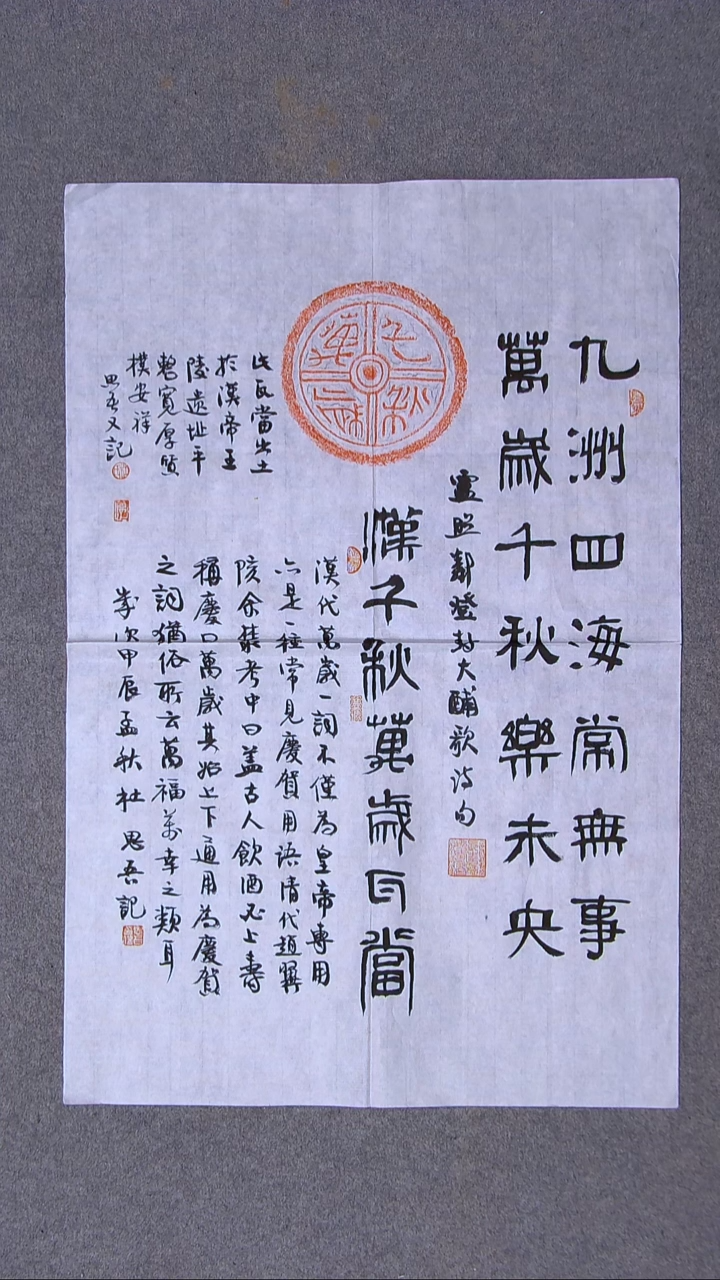 九洲四海常無事
萬歲千秋樂未央
盧照鄰登封大酺歌詩句
漢千秋萬歲瓦當
漢代萬歲一詞不僅為皇帝專用
亦是一種常見慶賀用語清代趙翼
陔余叢考中曰蓋古人飲酒必上壽
稱慶曰萬歲其始上下通用為慶賀
之詞猶俗所云萬福萬幸之類耳
歲次甲辰孟秋杜思吾記
千秋萬歲
此瓦當出土
於漢帝王
陵遺址平
整寬厚質
樸安祥
思吾又記